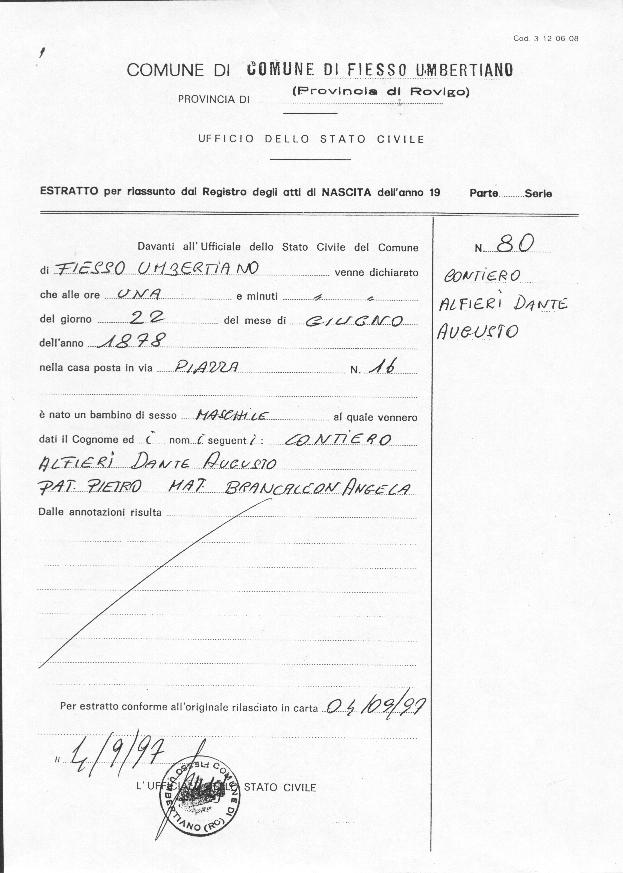 Cod. 3 12 06 08
COMUNE DI COMUNE DI FIESSO UMBERTIANO
PROVINCIA DI (Provincia di Rovigo)
UFFICIO DELLO STATO CIVILE
ESTRATTO per riassunto dal Registro degli atti di NASCITA dell'anno 19 Parte Serie
Davanti all'Ufficiale dello Stato Civile del Comune
di FIESSO UMBERTIANO venne dichiarato
che alle ore UNA e minuti
del giorno 22 del mese di GIUGNO
dell'anno 1878
nella casa posta in via PIAZZA N. 16
è nato un bambino di sesso MASCHILE al quale vennero
dati il Cognome ed i nom i seguenti i : CONTIERO
ALFIERI DANTE AUGUSTO
PAT. PIETRO MAT. BRANCALEON ANGELA
Dalle annotazioni risulta
N. 80
CONTIERO
ALFIERI DANTE
AUGUSTO
Per estratto conforme all'originale rilasciato in carta 04/09/97
li 4/9/97
L'UFFICIALE DELLO STATO CIVILE
COMUNE DI FIESSO UMBERTIANO (RO)